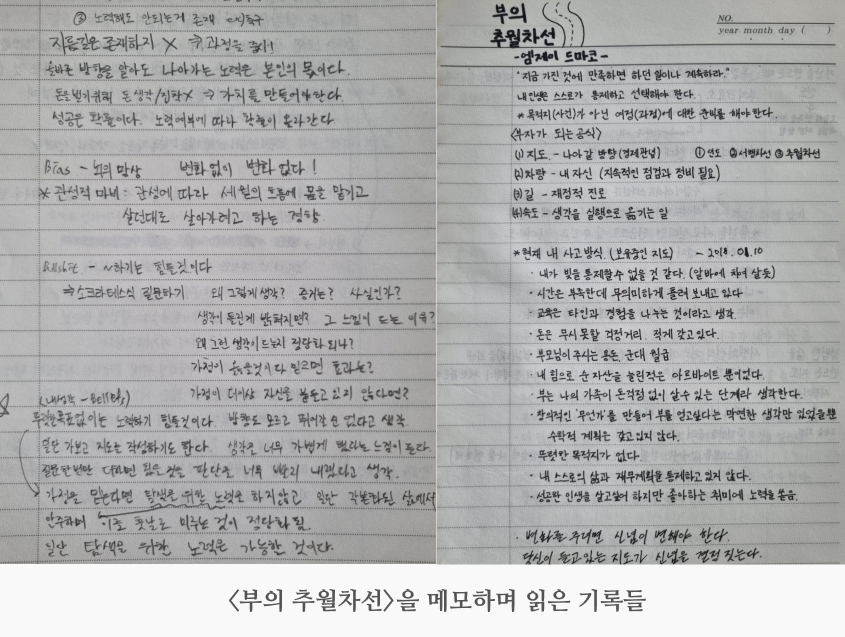 ③ 노력해도 안되는거 존재
지름길은 존재하지 X → 과정을 즐기!
올바른 방향을 알아도 나아가는 노력은 본인의 몫이다.
돈을 벌기위해 돈 생각/집착X ⇒ 가치를 만들어야한다.
성공은 확률이다. 노력여부에 따라 확률이 올라간다
Bias - 뇌의 망상 변화 없이 변화 없다!
* 관성적 마녀 : 관성에 따라 세월의 흐름에 몸을 맡기고
살던대로 살아가려고 하는 경향
- ~하기는 힘든것이다
⇒ 소크라테스식 질문하기 왜 그렇게 생각? 증거는? 사실인가?
생각이 틀린게 밝혀지면? 그 느낌이 드는 이유?
왜 그런 생각이 드는지 정당화 되나?
가정이 옳은것이다 믿으면 효과는?
가정이 더이상 자신을 붙들고 있지 않다면?
뚜렷한목표없이는 노력하기 힘든것이다. 방향도 모르고 뛰어갈 순 없다고 생각
일단 가보고 지도를 작성하기도 한다. 생각을 너무 가볍게 했다는 느낌이 든다.
질문 한번만 더하면 됐을 것을 판단을 너무 빨리 내렸다고 생각.
가정을 믿는다면 탐색을 위한 노력을 하지않고 일단 삶에서
안주하며 훗날로 미루는 것이 정당화 됨.
일단 탐색을 위한 노력은 가능한 것이다.
부의
추월차선
NO.
year month day ( )
-엠제이 드마코-
"지금 가진 것에 만족하면 하던 일이나 계속하라."
내 인생은 스스로가 통제하고 선택해야 한다.
* 목적지(사건)가 아닌 여정(과정)에 대한 준비를 해야한다.
<부자가 되는 공식>
(1) 지도. - 나아갈 방향(경제관념) ① 인도 ② 서행차선 ③ 추월차선
(2) 차량 - 내 자신 (지속적인 점검과 정비 필요)
(3) 길 - 재정적 진로
(4) 속도 - 생각을 실행으로 옮기는 일
* 현재 내 사고방식. (보유중인 지도)
· 내가 빚을 통제할수 없을 것 같다. (알바에 치여 살듯)
· 시간은 부족한데 무의미하게 흘러 보내고 있다
· 교육은 타인과 경험을 나누는 것이라고 생각
· 돈은 무시 못할 걱정거리. 적게 갖고있다.
· 부모님이 주시는 용돈, 군대 월급
· 내 힘으로 순 자산을 늘린적은 아르바이트 뿐이었다.
· 부는 나의 가족이 돈걱정 없이 살수 있는 단계라 생각한다.
· 창의적인 '무언가'를 만들어 부를 얻고싶다는 막연한 생각만 있었을뿐
수학적 계획은 갖고있지 않다.
· 뚜렷한 목적지가 없다.
· 내 스스로의 삶과 재무계획을 통제하고 있지 않다.
· 성공한 인생을 살고싶어 하지만 좋아하는 취미에 노력을 쏟음.
· 변화를 주려면 신념이 변해야 한다.
당신이 들고있는 지도가 신념을 결정 짓는다.
<부의 추월차선>을 메모하며 읽은 기록들